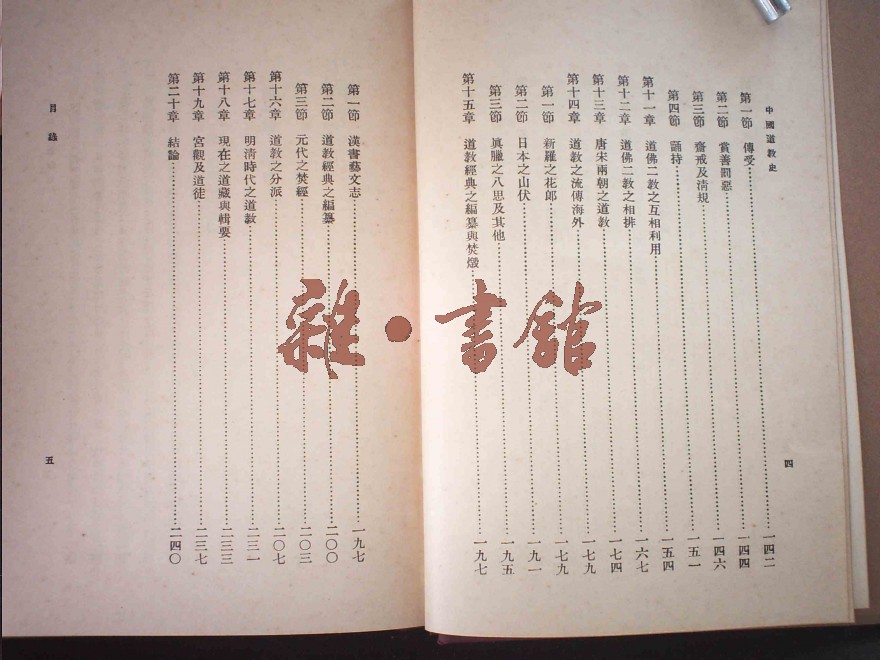 中國道教史
第一節 傳受……一四二
第二節 賞善罰惡……一四四
第三節 齋戒及清規……一四六
第四節 誦持……一五一
第十一章 道佛二教之互相利用……一五四
第十二章 道佛二教之相排……一六七
第十三章 唐宋兩朝之道教……一七四
第十四章 道教之流傳海外……一七九
第一節 新羅之花郎……一七九
第二節 日本之山伏……一九一
第三節 眞臘之八思及其他……一九五
第十五章 道教經典之編纂與焚燬……一九七
四
第一節 漢書藝文志……一九七
第二節 道教經典之編纂……二〇〇
第三節 元代之焚經……二〇三
第十六章 道教之分派……二〇七
第十七章 明清時代之道教……二三一
第十八章 現在之道藏與輯要……二三三
第十九章 宮觀及道徒……二三七
第二十章 結論……二四〇
目錄
五
雜·書館